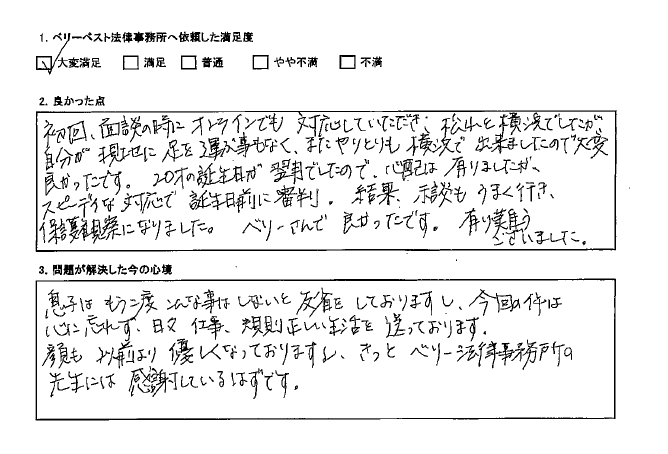 1. ベリーベスト法律事務所へ依頼した満足度
大変満足 満足 普通 やや不満 不満
2. 良かった点
初回、面談の時に オンラインでも 対応していただき、松山と横浜でしたが
自分が 現地に 足を運ぶ事もなく、またやりとりも 横浜で 出来ましたので大変
良かったです。 20才の誕生日が 翌月でしたので、心配は 有りましたが、
スピーディな 対応で 誕生日前に 審判。 結果、示談も うまく行き、
保護観察になりました。 ベリーさんで 良かったです。 有り難う
ございました。
3. 問題が解決した今の心境
息子は もう二度 こんな事は しないと 反省を しておりますし、今回の件は
心に 忘れず、日々 仕事、規則正しい生活を 送っております。
顔も 以前より 優しくなっておりますし、きっと ベリー法律事務所の
先生には 感謝しているはずです。